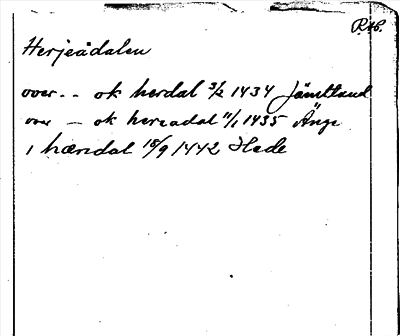 R46.
Herjeådalen
over - - ok herdal 3/2 1434 Jämtland
over - ok hereadal 11/1 1435 Änge
i hærdal 18/9 1442 Hede